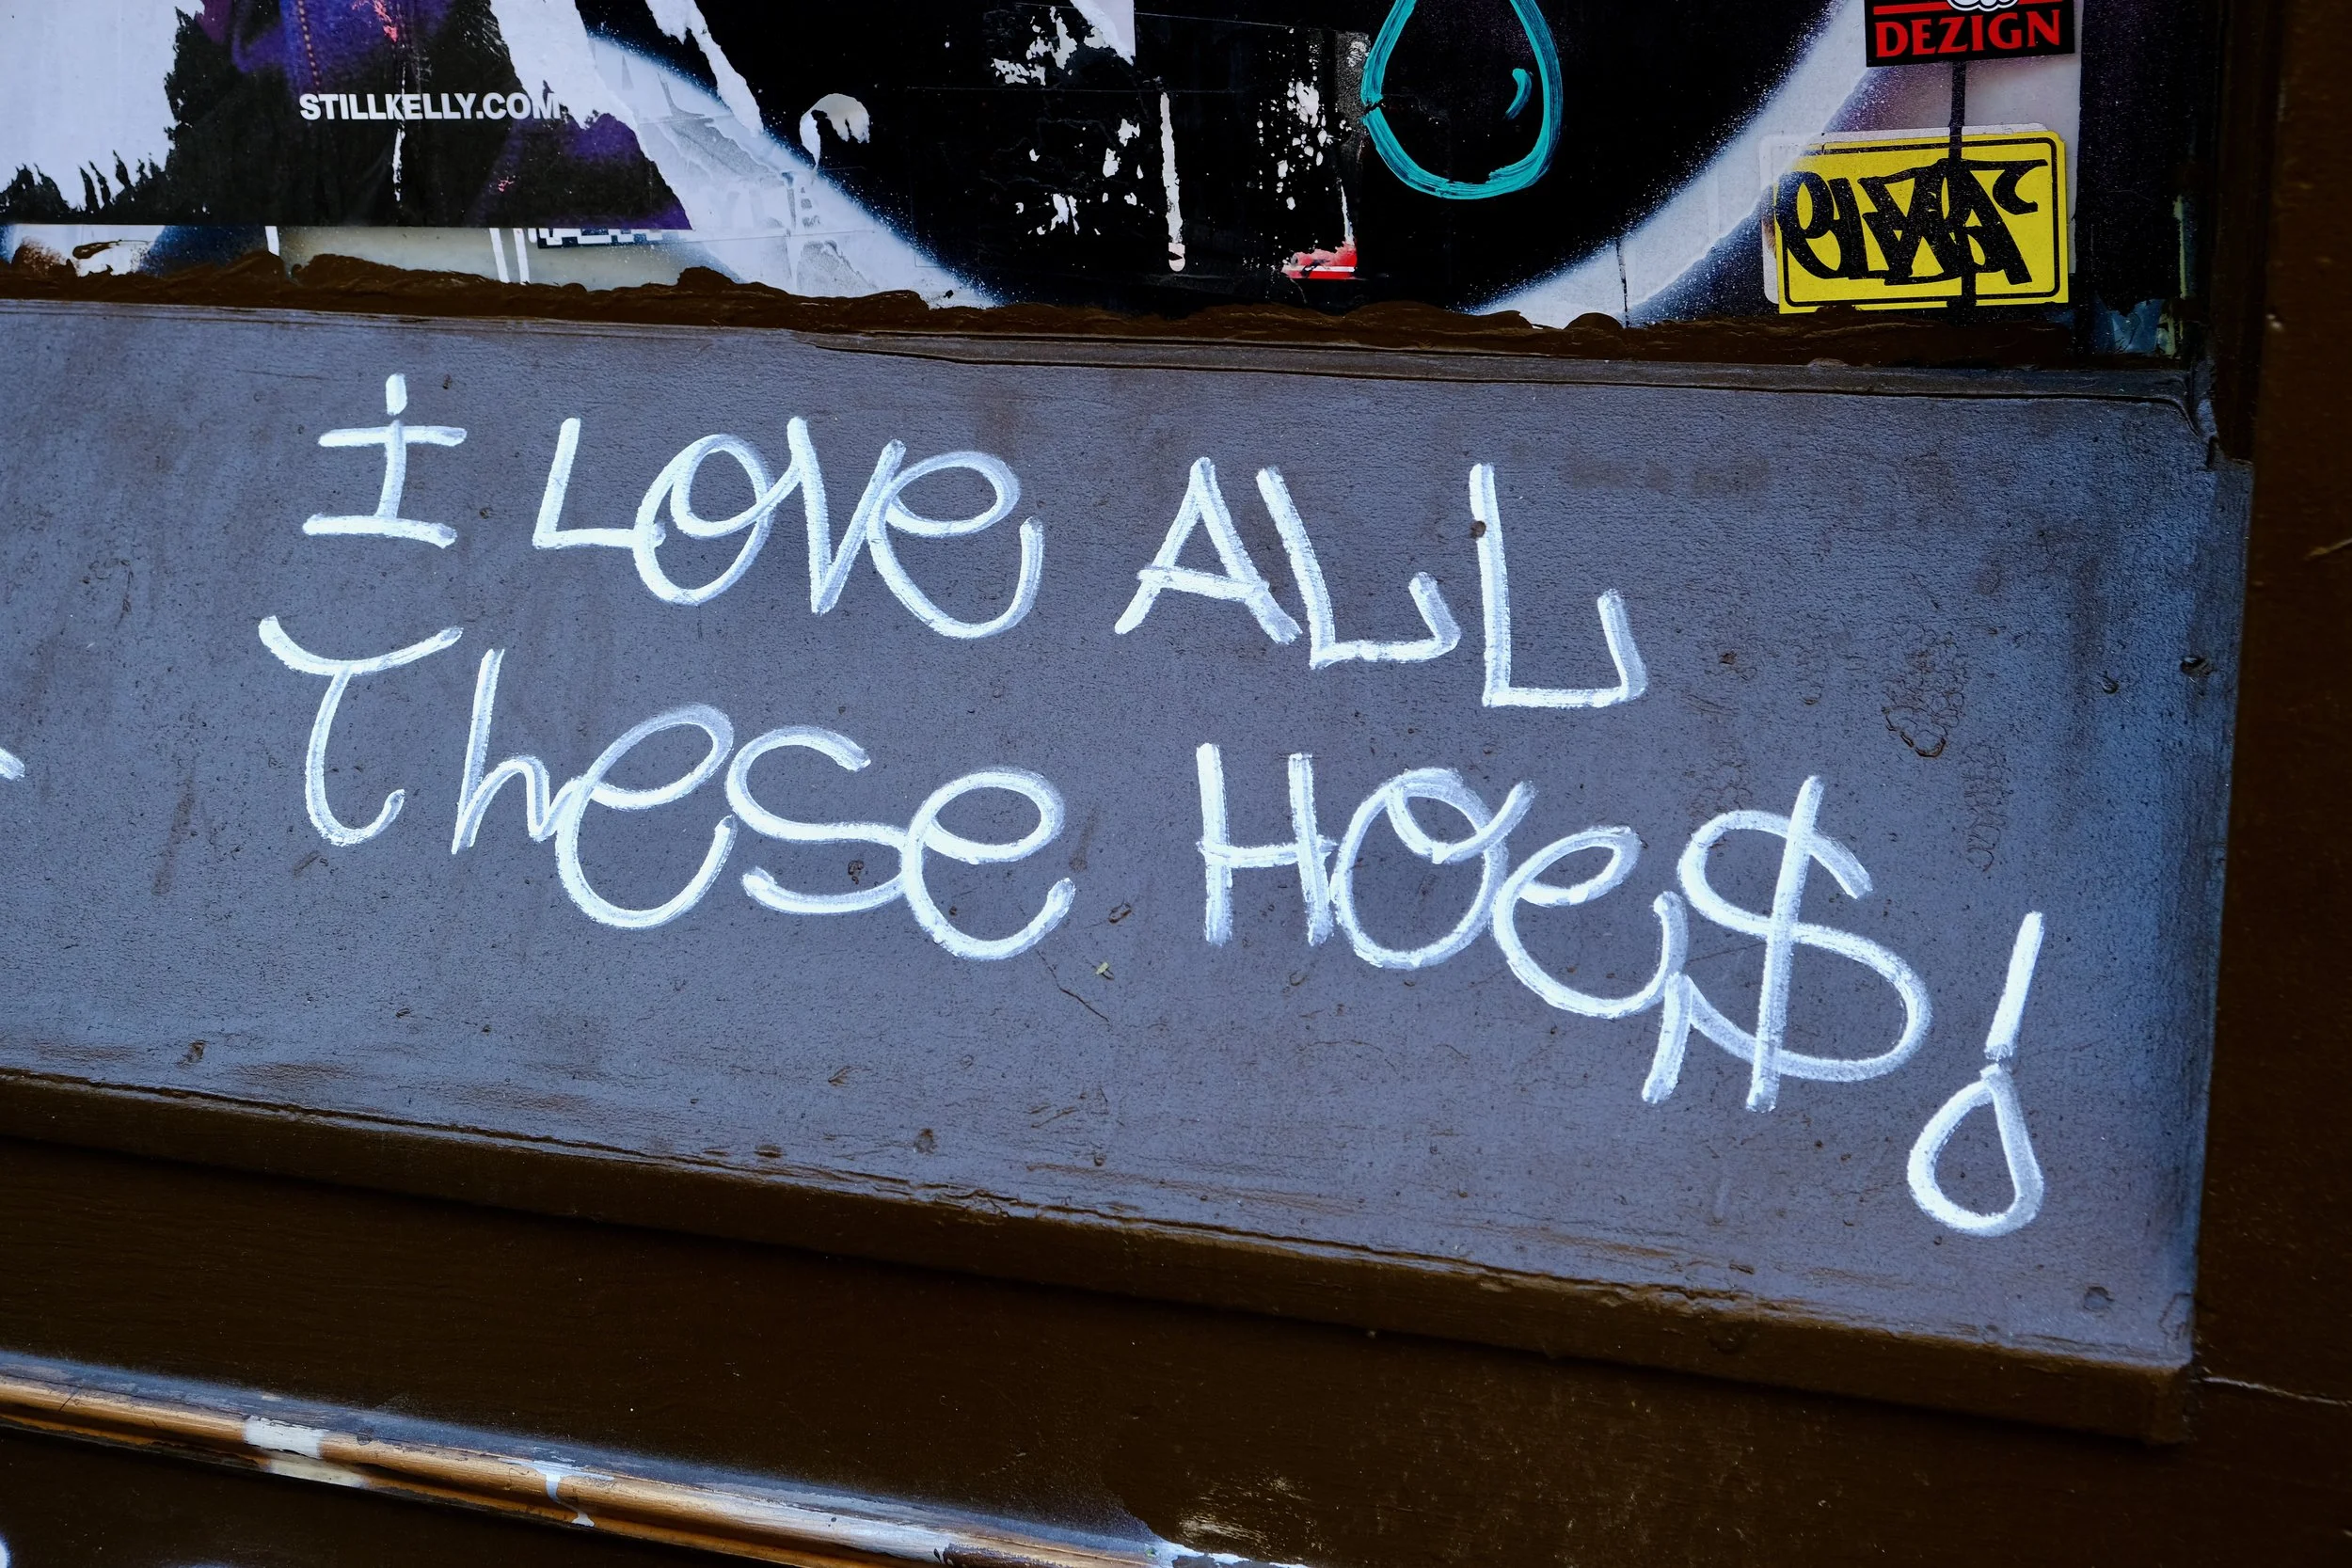 DEZIGN
STILLKELLY.COM
I LOVe ALL
TheSe HOe$!